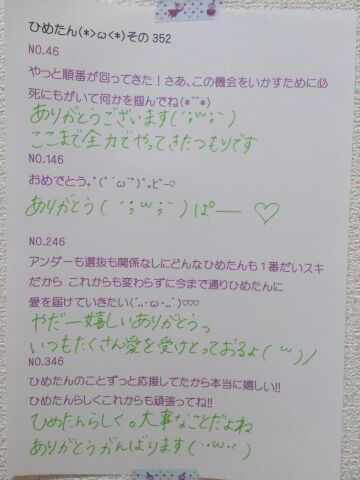 ひめたん(*>ω<*)その352
NO.46
やっと順番が回ってきた！さあ、この機会をいかすために必
死にもがいて何かを掴んでね(*^^*)
ありがとうございます(´;ω;`)
ここまで全力でやってきたつもりです
NO.146
おめでとう｡ﾟ(ﾟ´ω`ﾟ)ﾟ｡ﾋﾟｰ♡
ありがとう(´;ω;`)ぱー♡
NO.246
アンダーも選抜も関係なしにどんなひめたんも１番だいスキ
だから これからも変わらずに今まで通りひめたんに
愛を届けていきたい(´,,･ω･,,`)♡♡♡
やだー嬉しいありがとうっ
いつもたくさん愛を受けとっておるよ( ω )ﾉ
NO.346
ひめたんのことずっと応援してたから本当に嬉しい!!
ひめたんらしくこれからも頑張ってね!!
ひめたんらしく。大事なことだよね
ありがとうがんばります(´･ω･`)